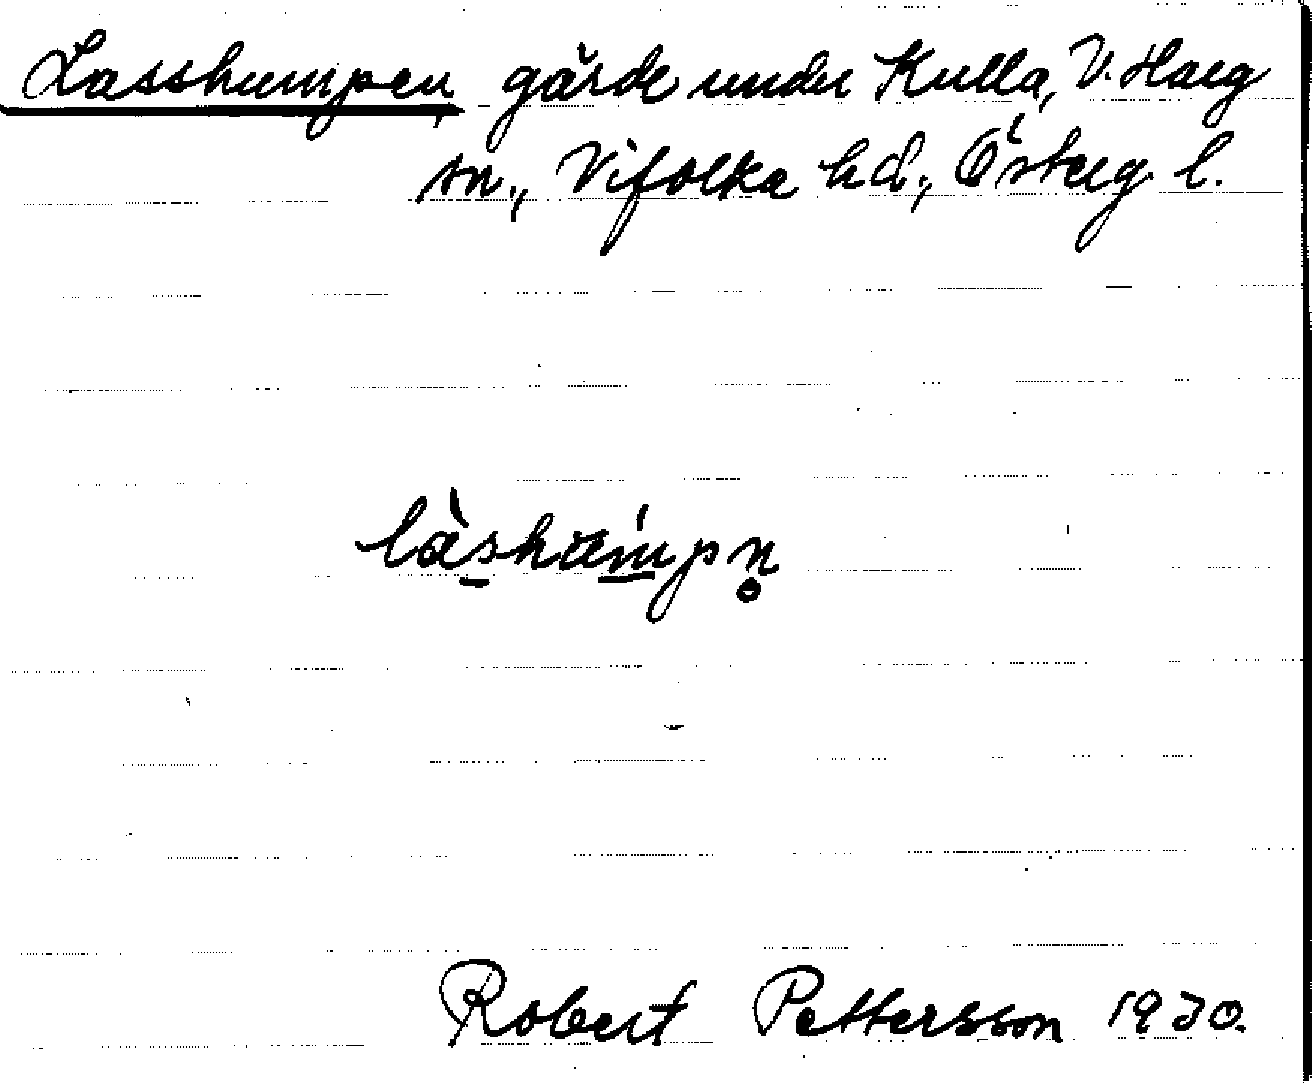 Lasshumpen, gärde under Kulla, V. Harg
sn., Vifolka hd., Österg. l.
làshúmpn̥
Robert Pettersson 1930.